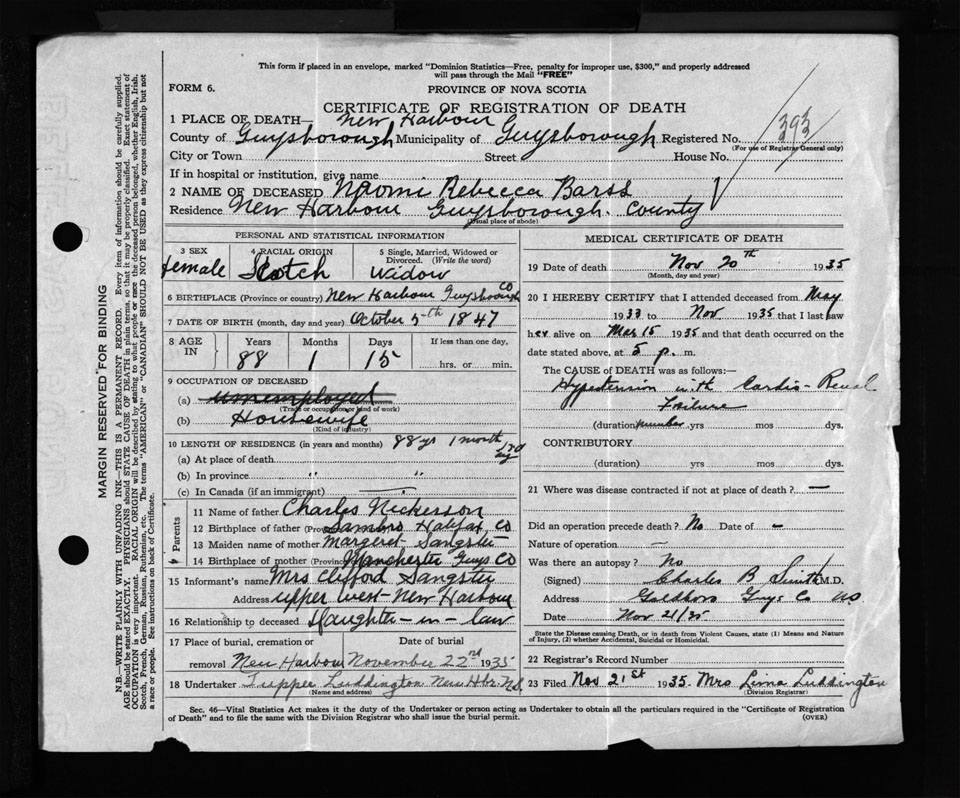 This form if placed in an envelope, marked "Dominion Statistics—Free, penalty for improper use, $300," and properly addressed
will pass through the Mail "FREE"
FORM 6.
PROVINCE OF NOVA SCOTIA
CERTIFICATE OF REGISTRATION OF DEATH
1 PLACE OF DEATH— New Harbour
County of Guysborough Municipality of Guysborough Registered No. 393
(For use of Registrar General only)
City or Town Street House No.
If in hospital or institution, give name
2 NAME OF DECEASED Naomi Rebecca Barss
Residence New Harbour Guysborough County
(Usual place of abode)
PERSONAL AND STATISTICAL INFORMATION
3 SEX 4 RACIAL ORIGIN 5 Single, Married, Widowed or Divorced. (Write the word)
female Scotch Widow
6 BIRTHPLACE (Province or country) New Harbour Guysborough Co
7 DATE OF BIRTH (month, day and year) October 5th 1847
8 AGE IN Years Months Days If less than one day,
88 1 15 hrs. or min.
9 OCCUPATION OF DECEASED
(a) unemployed
(Trade or occupation or kind of work)
(b) Housewife
(Kind of industry)
10 LENGTH OF RESIDENCE (in years and months) 88 yrs 1 month
(a) At place of death
(b) In province " "
(c) In Canada (if an immigrant) —
Parents
11 Name of father Charles Nickerson
12 Birthplace of father (Prov Sambro Halifax Co
13 Maiden name of mother Margeret Sangster
14 Birthplace of mother (Province Manchester Guys Co
15 Informant's name Mrs Clifford Sangster
Address upper West-New Harbour
16 Relationship to deceased Daughter-in-law
17 Place of burial, cremation or removal Date of burial
New Harbour November 22nd 1935
18 Undertaker Tupper Luddington New Hbr. N.S.
(Name and address)
MEDICAL CERTIFICATE OF DEATH
19 Date of death Nov 20th 1935
(Month, day and year)
20 I HEREBY CERTIFY that I attended deceased from May
1933 to Nov 1935 that I last saw
her alive on Mar 15 1935 and that death occurred on the
date stated above, at 5 p. m.
The CAUSE OF DEATH was as follows:—
Hypertension with Cardio-Renal
Failure
(duration) number yrs mos dys.
CONTRIBUTORY
(duration) yrs mos dys.
21 Where was disease contracted if not at place of death? —
Did an operation precede death? No Date of —
Nature of operation —
Was there an autopsy? No
(Signed) Charles B Smith M.D.
Address Goldboro Guys Co NS
Date Nov 21/35
State the Disease causing Death, or in death from Violent Causes, state (1) Means and Nature
of Injury, (2) whether Accidental, Suicidal or Homicidal.
22 Registrar's Record Number
23 Filed Nov 21st 1935. Mrs Lima Luddington
(Division Registrar)
Sec. 46—Vital Statistics Act makes it the duty of the Undertaker or person acting as Undertaker to obtain all the particulars required in the "Certificate of Registration
of Death" and to file the same with the Division Registrar who shall issue the burial permit.
(OVER)
MARGIN RESERVED FOR BINDING
N.B.—WRITE PLAINLY WITH UNFADING INK—THIS IS A PERMANENT RECORD. Every item of information should be carefully supplied.
AGE should be stated EXACTLY. PHYSICIANS should STATE CAUSE OF DEATH in plain terms, so that it may be properly classified. Exact statement of
OCCUPATION is very important. RACIAL ORIGIN will be described by stating to what people or race the deceased person belonged, whether English, Irish,
Scotch, French, German, Russian, Ruthenian, etc. The terms "AMERICAN" or "CANADIAN" SHOULD NOT BE USED as they express citizenship but not
a race or people. See instructions on back of Certificate.